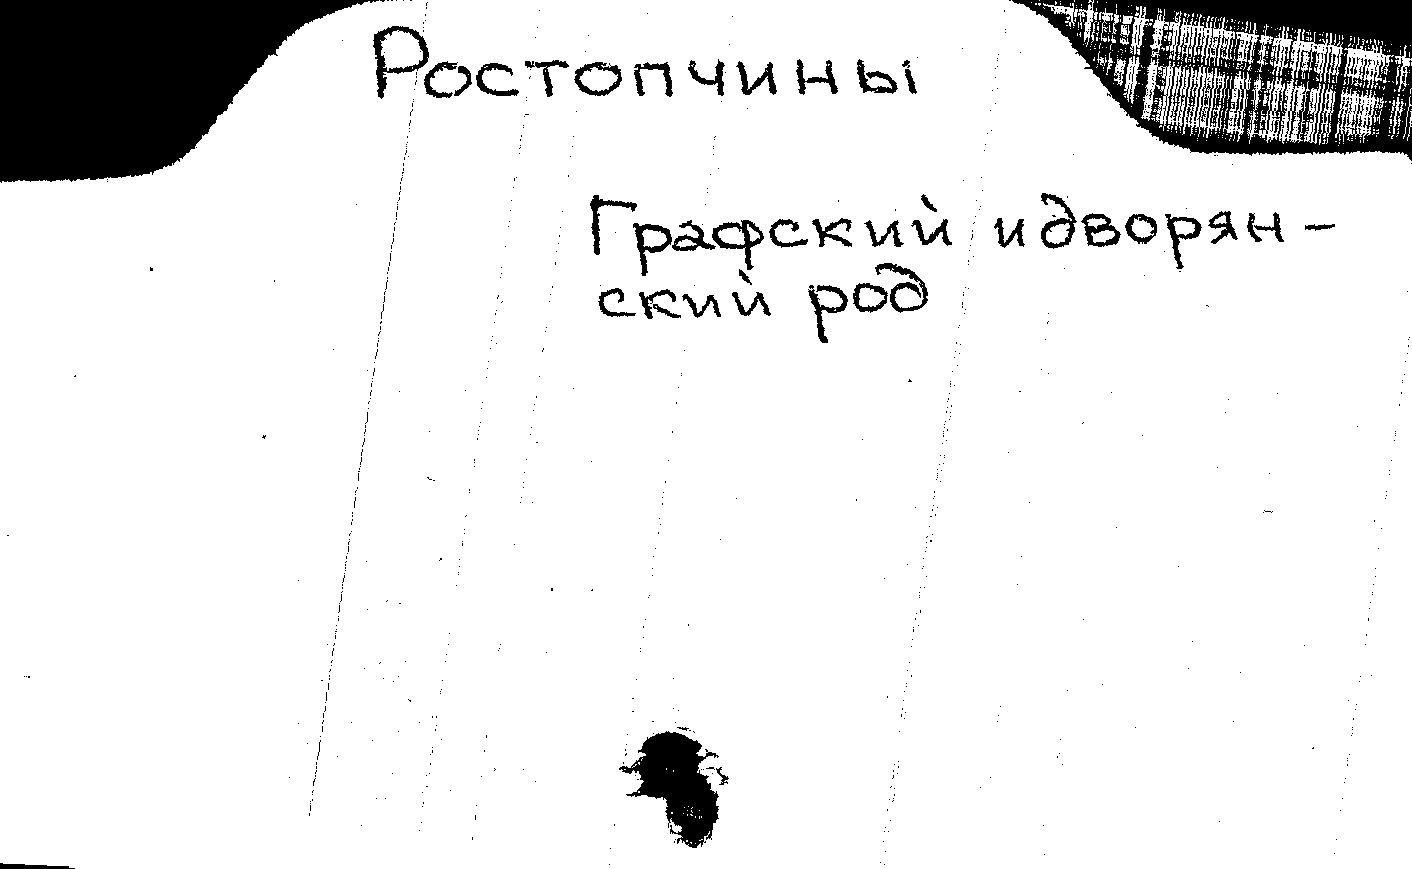 Ростопчины
Графский и дворян-
ский род